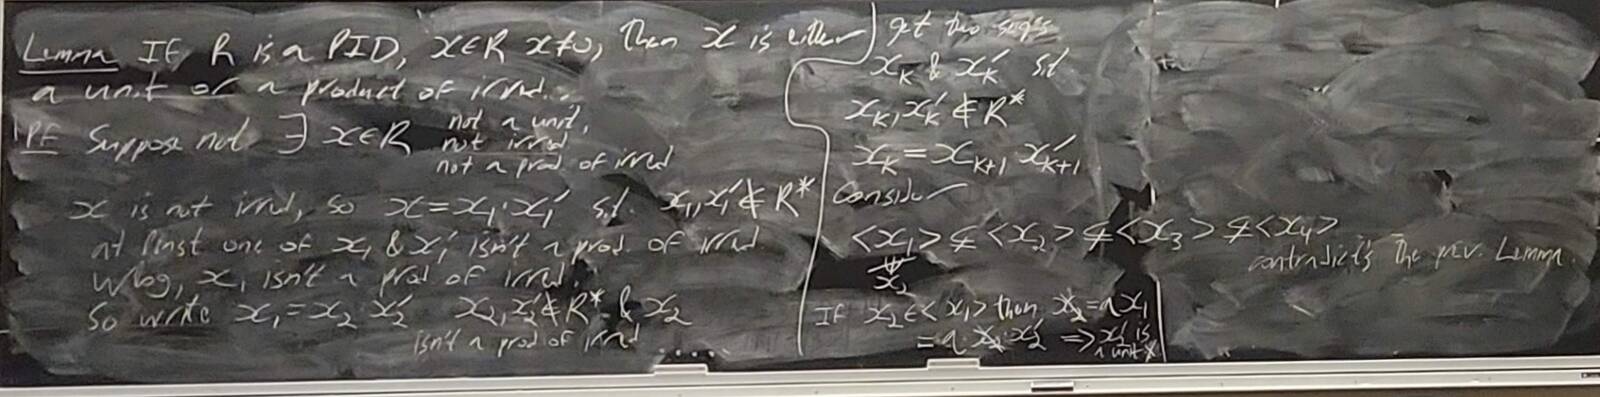 Lemma If R is a PID, x∈R x≠0, then x is either
a unit or a product of irred.
Pf Suppose not ∃ x∈R not a unit,
not irred
not a prod of irred
x is not irred, so x=x₁·x₁' s.t. x₁,x₁'∉R*
at least one of x₁ & x₁' isn't a prod. of irred
Wlog, x₁ isn't a prod of irred.
So write x₁=x₂·x₂' x₂,x₂'∉R* & x₂
isn't a prod of irred ....
get two seq's
xₖ & xₖ' s.t
xₖ,xₖ'∉R*
xₖ=xₖ₊₁ x'ₖ₊₁
Consider
<x₁>⊊<x₂>⊊<x₃>⊊<x₄>
contradicts the prev. Lemma.
x₂
If x₂∈<x₁> then x₂=a x₁
=a·x₂·x₂' ⇒ x₂' is
a unit